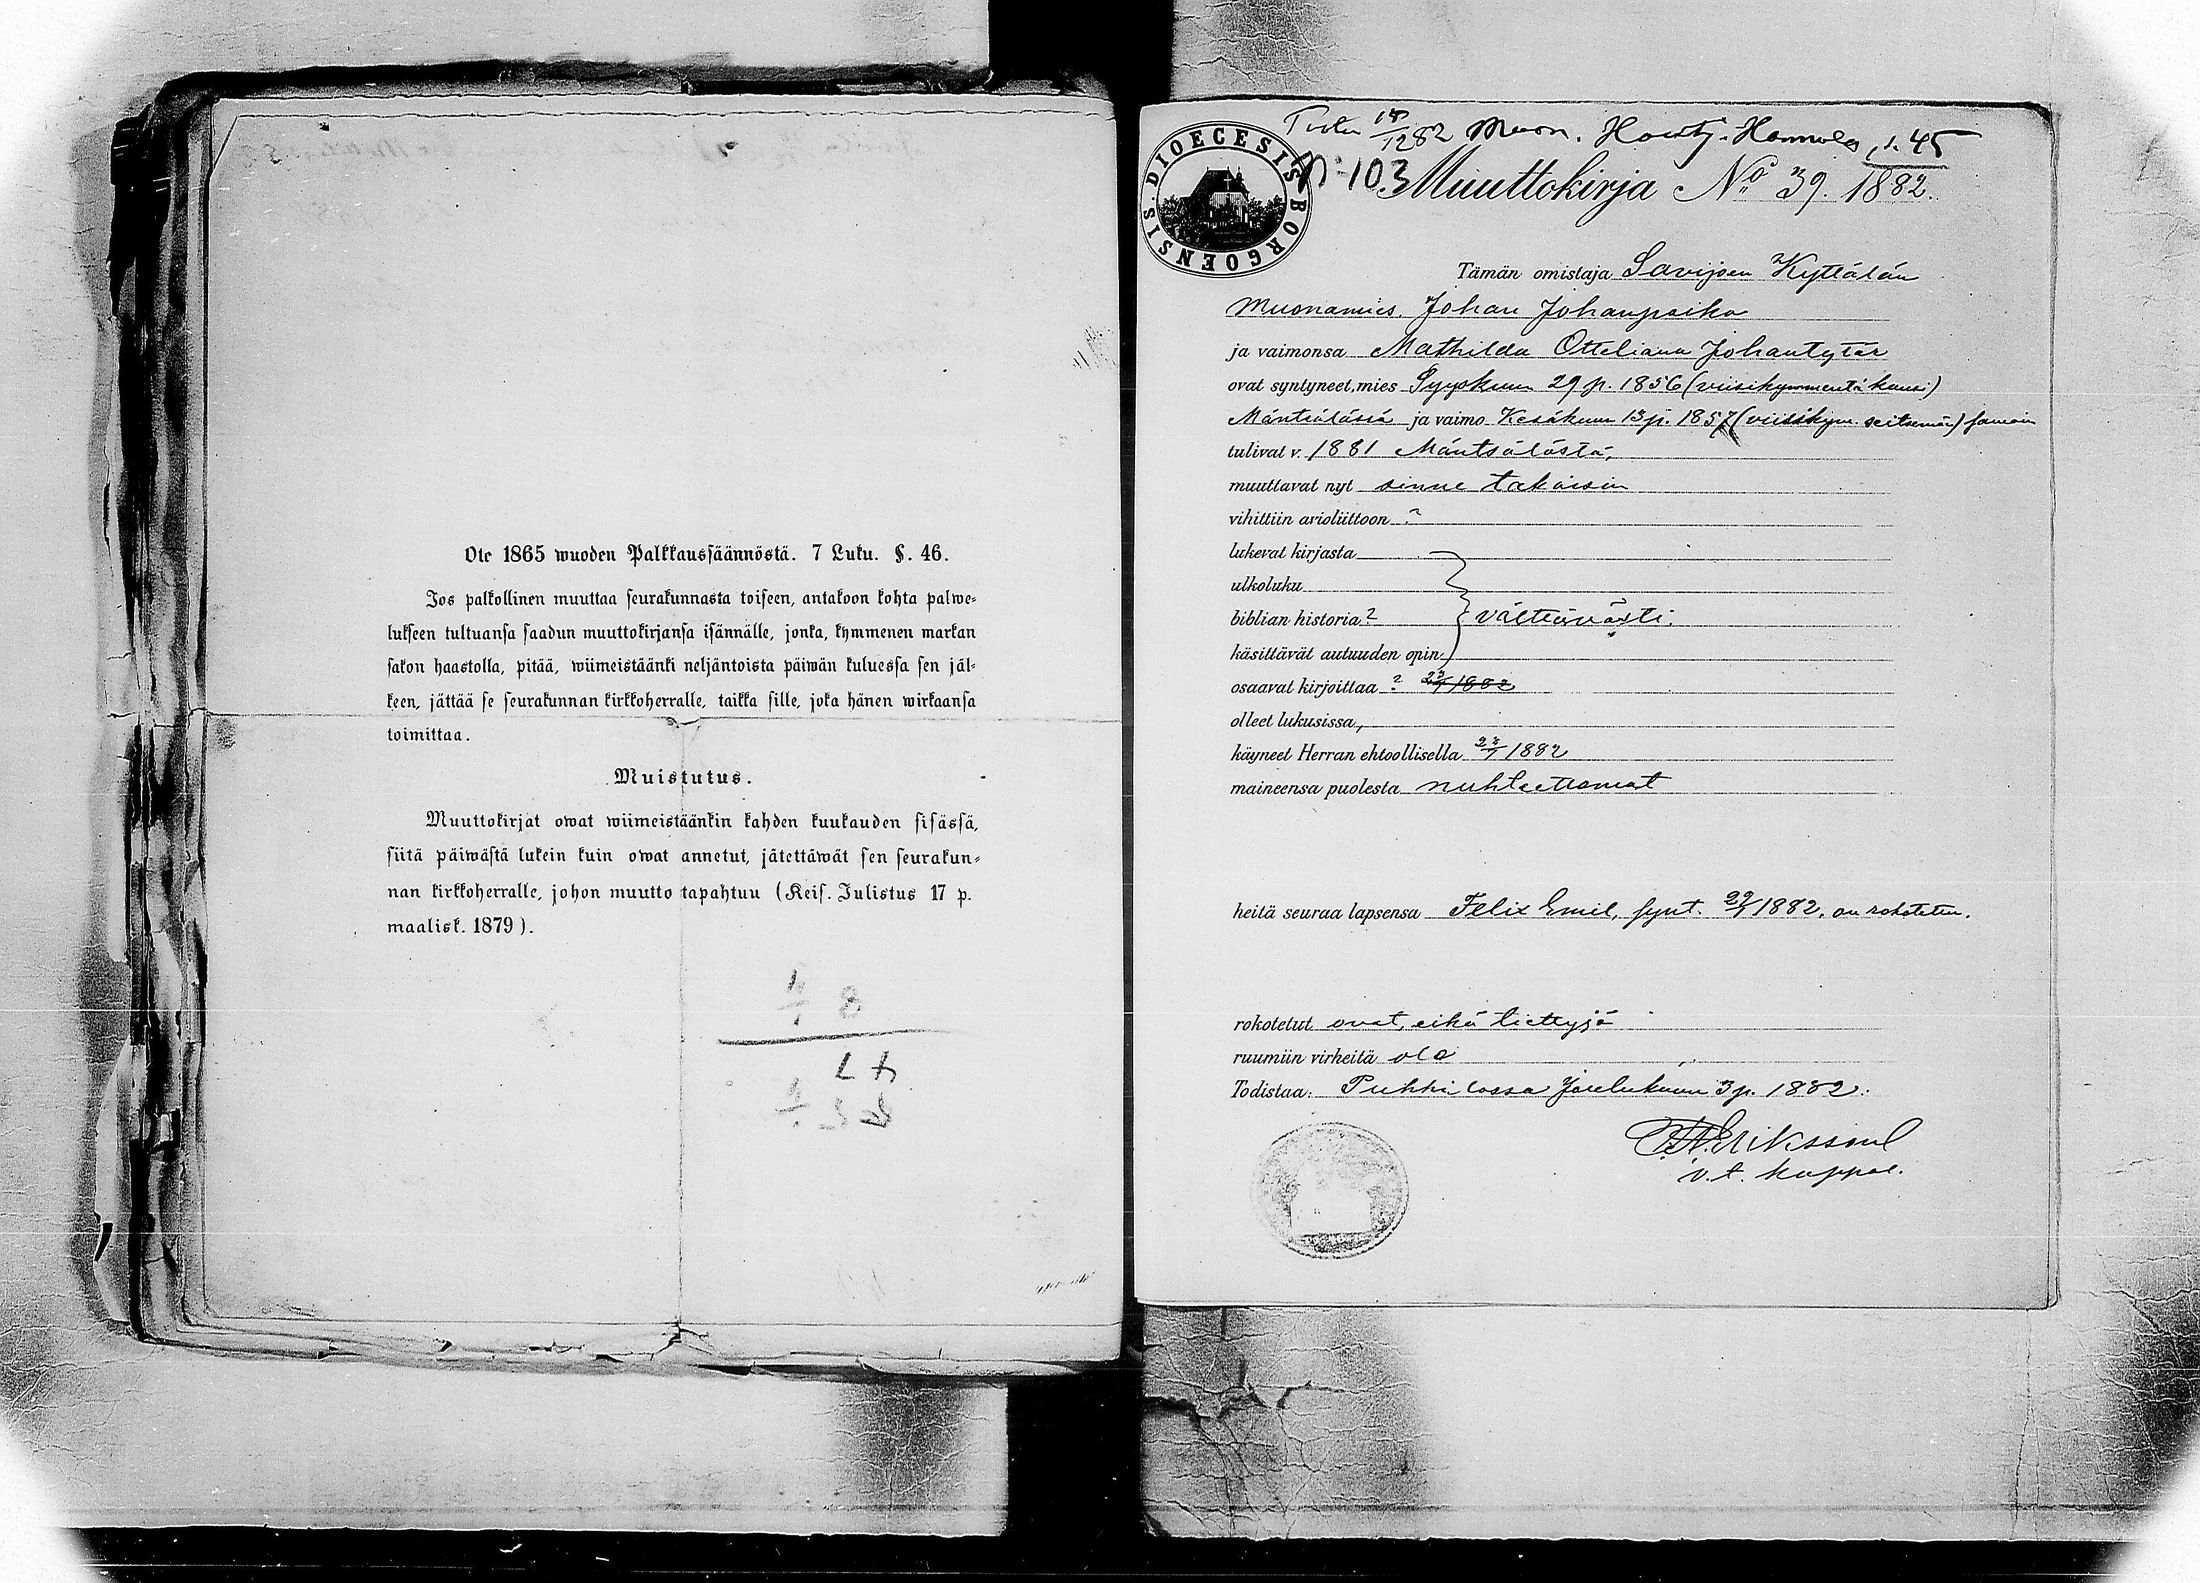 Ote 1865 wuoden Palkkaussäännöstä. 7 Luku. §. 46.
Jos palkollinen muuttaa seurakunnasta toiseen, antakoon kohta palwe-
lukseen tultuansa saadun muuttokirjansa isännälle, jonka, kymmenen markan
sakon haastolla, pitää, wiimeistäänki neljäntoista päiwän kuluessa sen jäl-
keen, jättää se seurakunnan kirkkoherralle, taikka sille, joka hänen wirkaansa
toimittaa.
Muistutus.
Muuttokirjat owat wiimeistäänkin kahden kuukauden sisässä,
siitä päiwästä lukein kuin owat annetut, jätettäwät sen seurakun-
nan kirkkoherralle, johon muutto tapahtuu (Keis. Julistus 17 p.
maalisk. 1879).
18/12 82 Muon. s. 45
DIOECESIS BORGOENSIS.
N:103 Muuttokirja No 39. 1882.
Tämän omistaja Savijoen Kyttälän
Muonamies Johan Johanpoika
ja vaimonsa Mathilda Otteliana Johantytär
ovat syntyneet, mies Syyskuun 29 p. 1856 (viisikymmentä kuusi)
Mäntsälässä ja vaimo Kesäkuun 13 p. 1857 (viisikym. seitsemän) samoin
tulivat v. 1881 Mäntsälästä,
muuttavat nyt sinne takaisin
vihittiin avioliittoon ?
lukevat kirjasta
ulkoluku
biblian historia ? välttävästi.
käsittävät autuuden opin
osaavat kirjoittaa ? 23/7 1882
olleet lukusissa,
käyneet Herran ehtoollisella 23/7 1882
maineensa puolesta nuhteettomat
heitä seuraa lapsensa Felix Emil, synt. 22/1 1882, on rokotettu.
rokotetut ovat, eikä tiettyjä
ruumiin virheitä ole
Todistaa: Pukkilassa Joulukuun 3 p. 1882.
Erikssonl
v. t. kappal.